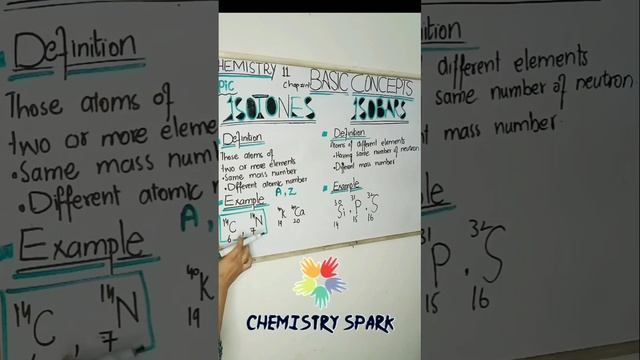 Definition
Those atoms of
two or more eleme
• Same mass numb
• Different atomic n
A,
Example
14 C 6 , 14 N 7
40 K 19
HEMISTRY 11
BASIC CONCEPTS
pic
ISOTONES
Definition
Those atoms of
two or more elements
• Same mass number
• Different atomic number
A, Z
Example
14 C 6 , 14 N 7
40 K 19 40 Ca 20
ISOBARS
Definition
Atoms of different elements
• Having same number of neutron
• Different mass number
Example
30 Si 14 . 31 P 15 . 32 S 16
CHEMISTRY SPARK
different elements
same number of neutron
mass number.
P 15 . 32 S 16